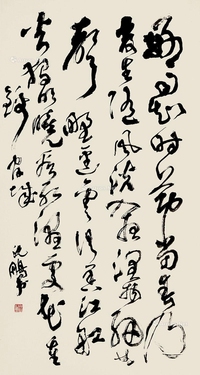 好雨知时节当春乃
发生随风潜入夜润物细无
声野径云俱黑江船
火独明晓看红湿处花重
锦官城
沈鹏书